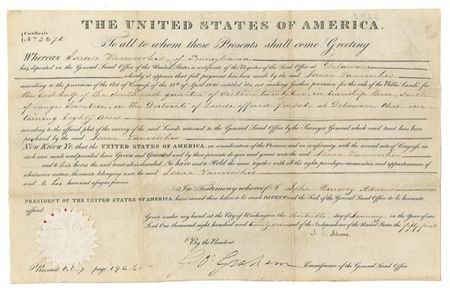 THE UNITED STATES OF AMERICA.
Certificate
To all to whom these Presents shall come Greeting
Whereas Isaac Vanvorhis of Pennsylvania
has deposited in the General Land Office of the United States, a Certificate of the Register of the Land Office at Delaware
whereby it appears that full payment has been made by the said Isaac Vanvorhis
according to the provisions of the Act of Congress of the 24th of April 1820 entitled An act making further provision for the sale of the Public Lands for
range seventeen, in the District of Lands offered for sale at Delaware Ohio, con
taining Eighty Acres
according to the official plat of the survey of the said Lands returned to the General Land Office by the Surveyor General which said tract has been
purchased by the said Isaac Vanvorhis
Now Know Ye, that the UNITED STATES OF AMERICA, in consideration of the Premises and in conformity with the several acts of Congress in
such case made and provided Have Given and Granted and by these presents do give and grant unto the said Isaac Vanvorhis
and to his heirs the said tract above described: To have and to Hold the same together with all the rights privileges immunities and appurtenances of
whatsoever nature, thereunto belonging unto the said Isaac Vanvorhis
and to his heirs and assigns forever
In Testimony whereof I, John Quincy Adams
PRESIDENT OF THE UNITED STATES OF AMERICA, have caused these Letters to be made PATENT and the Seal of the General Land Office to be hereunto
affixed.
Given under my hand at the City of Washington the of January in the Year of our
Lord One thousand eight hundred and and of the Independence of the United States the fifty first
J. Q. Adams
By the President
Geo. Graham Commissioner of the General Land Office.
Recorded page 196